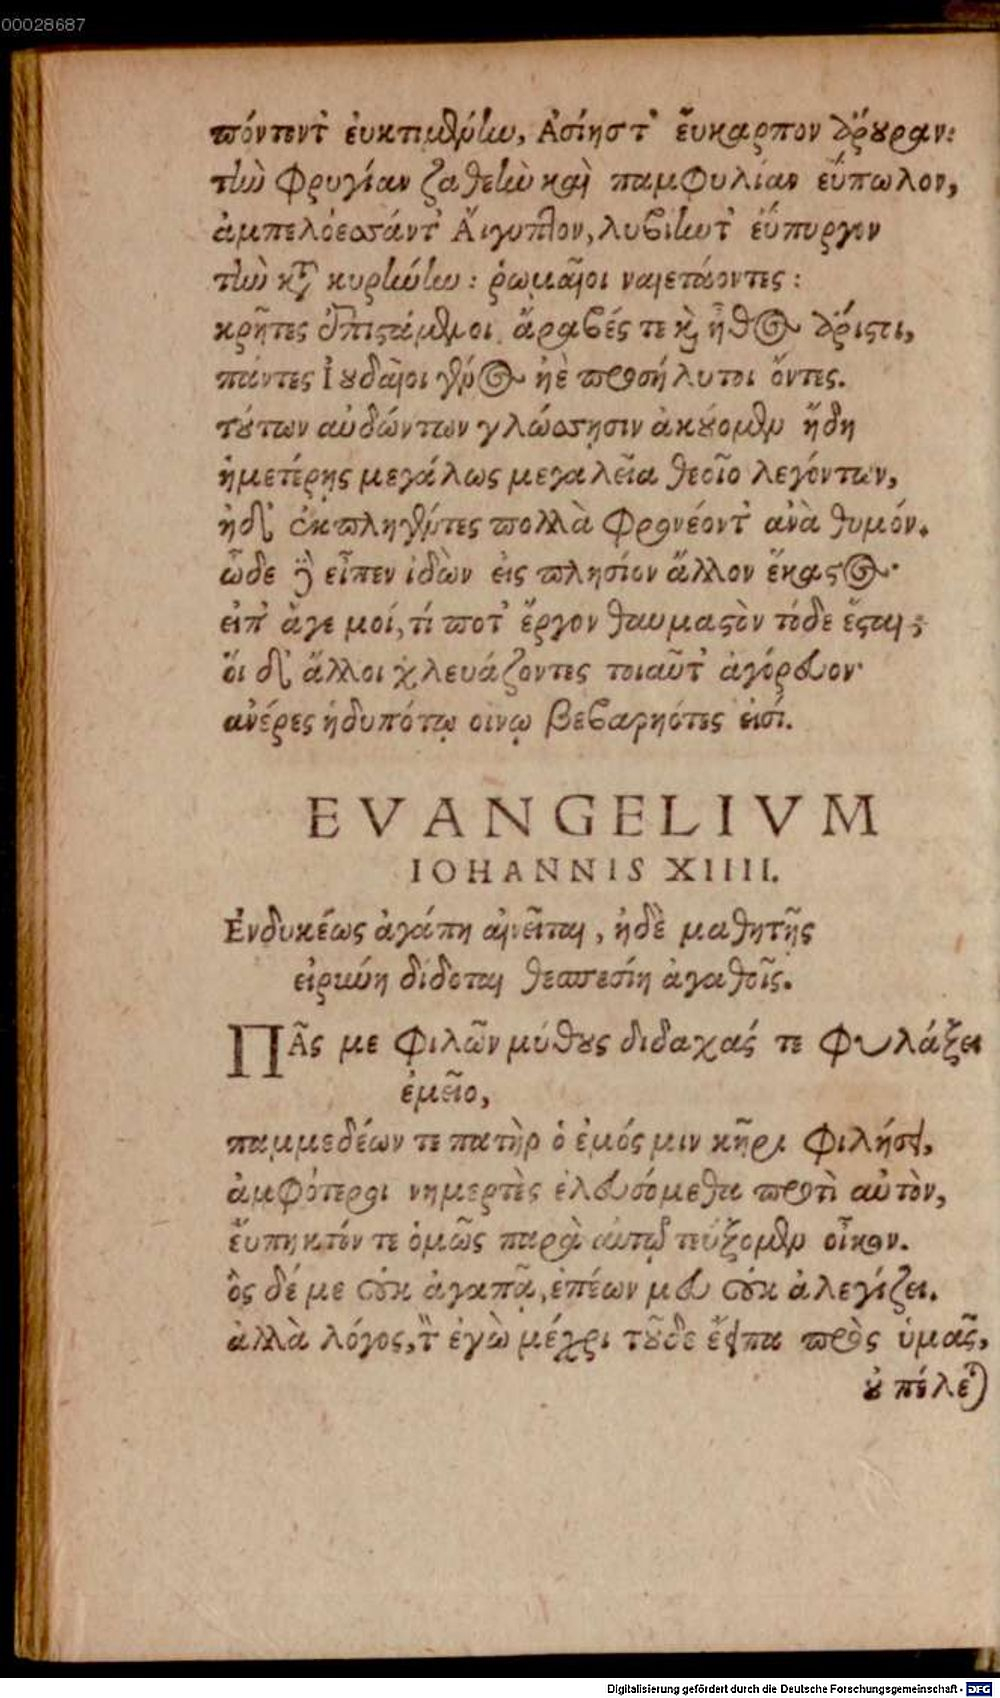 00028687
πόντεντ' ἐυκτιμένην, Ἀσίηστ' ἔυκαρπον ἄρουραν:
τὴν Φρυγίαν ζαθεὴν καὶ παμφυλίαν εὔπωλον,
ἀμπελόεσσάντ' Ἄιγυπτον, λυβιίωτ' ἐύπυργον
τὴν κατὰ κυρίωίω: ῥωμαῖοι ναιετάοντες:
κρῆτες ἐπιστάμενοι ἄραβές τε καὶ ἦθος ἄριστι,
πάντες Ἰουδαῖοι γένος ἠὲ προσήλυτοι ὄντες.
τούτων αὐδώντων γλώσσησιν ἀκούομεν ἤδη
ἡμετέρης μεγάλως μεγαλεῖα θεοῖο λεγόντων,
ἠδ' ἐκπληθέντες πολλὰ φρονέοντ' ἀνὰ θυμόν.
ὧδε δὲ εἶπεν ἰδὼν εἰς πλησίον ἄλλον ἕκαστος·
εἰπ' ἄγε μοί, τί ποτ' ἔργον θαυμαστὸν τόδε ἔσται;
ὅι δ' ἄλλοι χλευάζοντες τοιαῦτ' ἀγόρευον·
ἀνέρες ἡδυπότῳ οἴνῳ βεβαρηότες εἰσί.
EVANGELIVM
IOHANNIS XIIII.
Ἐνδυκέως ἀγάπη αἰνεῖται, ἠδὲ μαθητῆς
εἰρήνη δίδοται θεσπεσίη ἀγαθοῖς.
ΠᾶΣ με φιλῶν μύθους διδαχάς τε φυλάξει
ἐμεῖο,
παμμεδέων τε πατὴρ ὁ ἐμός μιν κῆρι φιλήσει,
ἀμφότεροι νημερτὲς ἐλευσόμεθα προτὶ αὐτὸν,
ἔυπηκτόν τε ὁμῶς παρὰ αὐτῷ τεύξομεν οἶκον.
ὃς δέ με οὐκ ἀγαπᾷ, ἐπέων μευ οὐκ ἀλεγίζει.
ἀλλὰ λόγος, τὸν ἐγὼ μέχρι τοῦδε ἔειπα πρὸς ὑμᾶς,
οὐ πέλεται
Digitalisierung gefördert durch die Deutsche Forschungsgemeinschaft - DFG